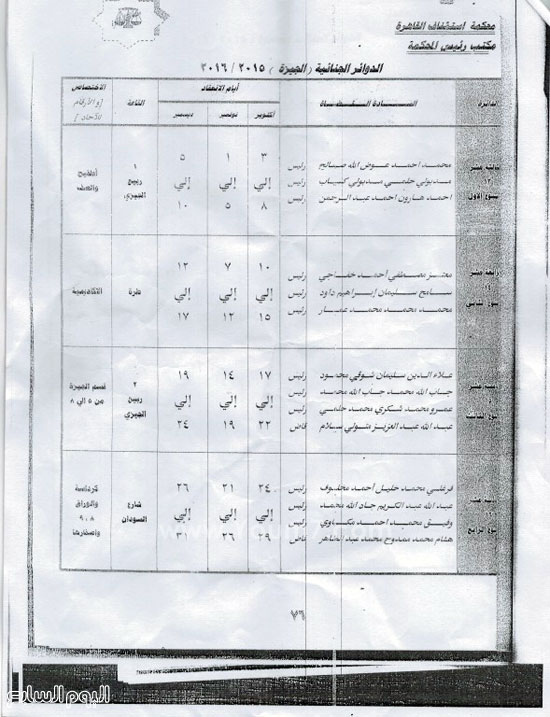 محكمة استئناف القاهرة
مكتب رئيس المحكمة
الدوائر الجنائية ( الجيزة ) ٢٠١٥ / ٢٠١٦
الدائرة السادة القضاة أيام الانعقاد القاعة الاختصاص
أكتوبر نوفمبر ديسمبر
محمد احمد عوض الله صالح رئيس ٣ ١ ٥ ١
مدبولي حلمي مدبولي كساب رئيس إلي إلي إلي ربيع أطفيح
احمد هارون احمد عبد الرحمن رئيس ٨ ٥ ١٠ الجيزي والصف
معتز مصطفي احمد خفاجي رئيس ١٠ ٧ ١٢
سامح سليمان إبراهيم داود رئيس إلي إلي إلي طرة
محمد محمد محمد عمار رئيس ١٥ ١٢ ١٧
علاء الدين سليمان شوقي محمود رئيس ١٧ ١٤ ١٩ ٢ قسم الجيزة
جاب الله محمد جاب الله محمد رئيس إلي إلي إلي ربيع من ٥ الي ٨
عمرو محمد شكري محمد حلمي رئيس الجيزي
عبد الله عبد العزيز متولي سلام قاض ٢٢ ١٩ ٢٤
فرغلي محمد خليل احمد مخلوف رئيس ٢٤ ٢١ ٢٦ كرداسة
عبد الله عبد الكريم جاد الله محمد رئيس إلي إلي إلي شارع والوراق
وفيق محمد احمد رئيس السودان ٨ ، ٩
هشام محمد ممدوح محمد عبد الظاهر قاض ٢٩ ٢٦ ٣١
٧٦
اليوم السابع